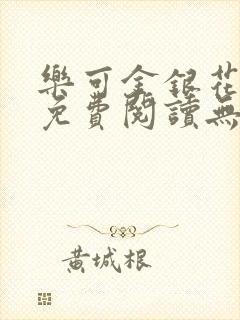 樂可金銀花
免費閱讀無
黃城根